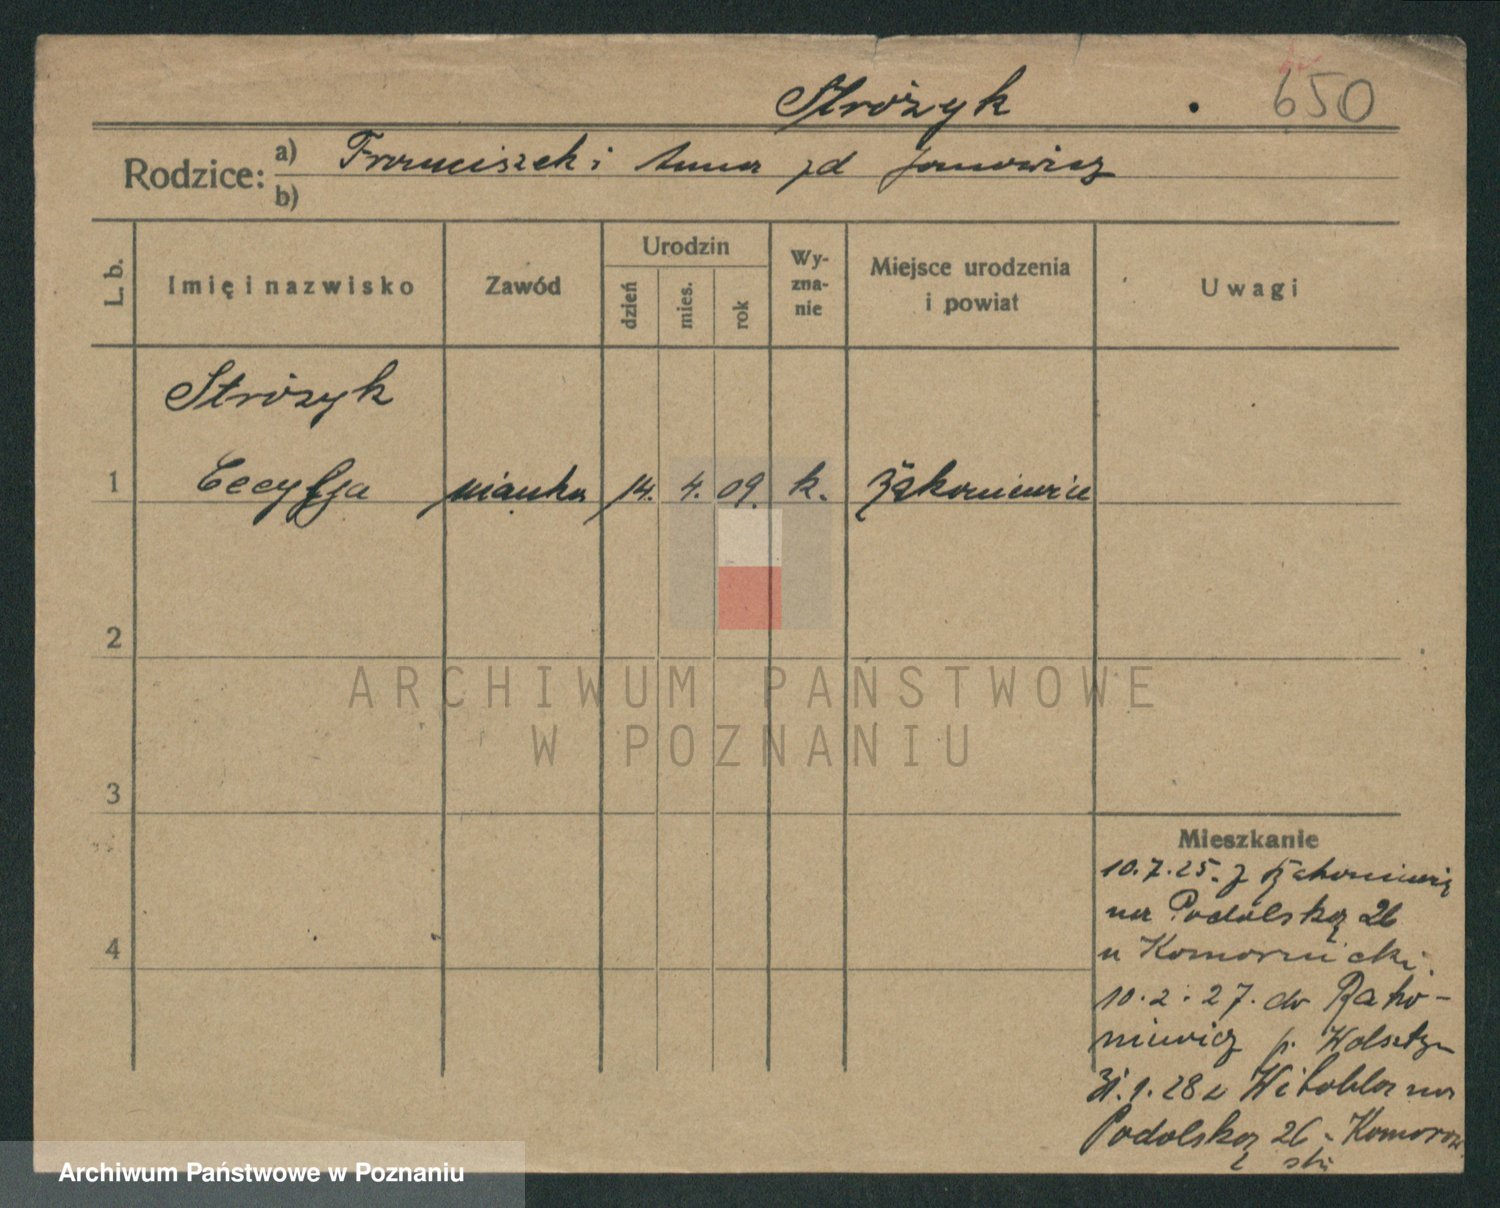 Stróżyk . 650
Rodzice: a) Franciszek i Anna zd Janowicz
b)
L. b. Imię i nazwisko Zawód Urodzin dzień mies. rok Wy-zna-nie Miejsce urodzenia i powiat Uwagi
Stróżyk
1 Cecylja nianka 14. 4. 09. k. Rakoniewice
2
ARCHIWUM PAŃSTWOWE
W POZNANIU
3
Mieszkanie
10.7.25. z Rakoniewic
na Podolską 26
u Komornicki.
4
10.2.27. do Rako-
niewicz p. Wolsztyn
31.1.28 z Witobla na
Podolską 26 -
Archiwum Państwowe w Poznaniu